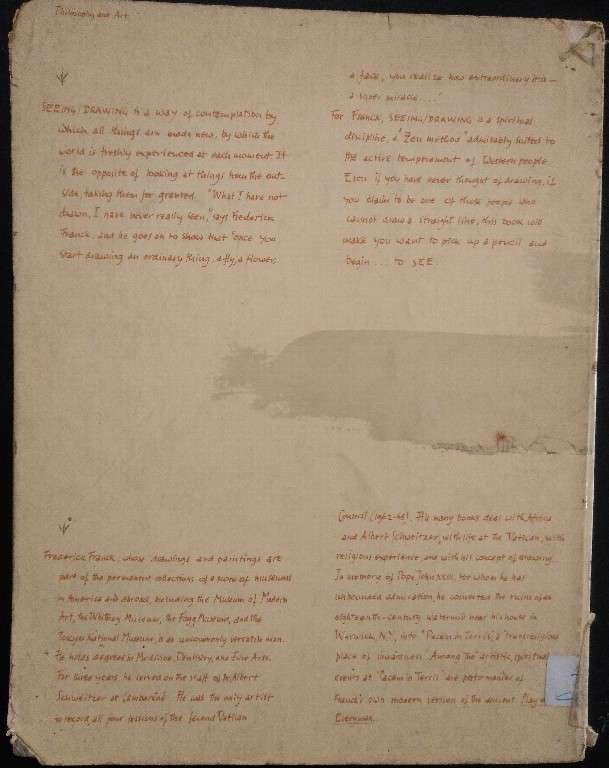 Philosophy and Art
SEEING/DRAWING is a way of contemplation by
which all things are made new, by which the
world is freshly experienced at each moment. It
is the opposite of looking at things from the out-
side, taking them for granted. "What I have not
drawn, I have never really seen," says Frederick
Franck, and he goes on to show that "once you
start drawing an ordinary thing, a fly, a flower,
a face, you realize how extraordinary it is—
a sheer miracle...."
For Franck, SEEING/DRAWING is a spiritual
discipline, a "Zen method" admirably suited to
the active temperament of Western people.
Even if you have never thought of drawing, if
you claim to be one of those people who
cannot draw a straight line, this book will
make you want to pick up a pencil and
begin... to SEE.
Frederick Franck, whose drawings and paintings are
part of the permanent collections of a score of museums
in America and abroad, including the Museum of Modern
Art, the Whitney Museum, the Fogg Museum, and the
Tokyo National Museum, is an uncommonly versatile man.
He holds degrees in Medicine, Dentistry, and Fine Arts.
For three years he served on the staff of Dr. Albert
Schweitzer at Lambaréné. He was the only artist
to record all four sessions of the Second Vatican
Council (1962-65). His many books deal with Africa
and Albert Schweitzer, with life at the Vatican, with
religious experience and with his concept of drawing.
In memory of Pope John XXIII, for whom he has
unbounded admiration, he converted the ruins of an
eighteenth-century watermill near his house in
Warwick, N.Y., into "Pacem in Terris," a "transreligious
place of inwardness." Among the artistic, spiritual
events at "Pacem in Terris" are performances of
Franck's own modern version of the ancient Play of
Everyman.